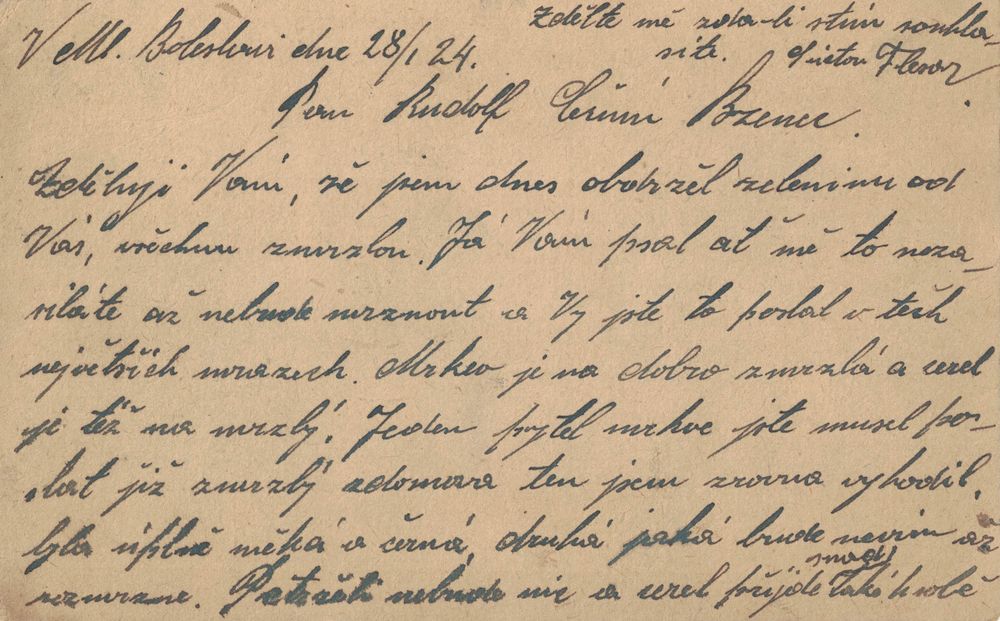 Zdělte mě zda-li stím souhla-
síte.
V Ml. Boleslavi dne 28/1 24.
Pan Rudolf Černý Bzenec.
Zděluji Vám, žě jsem dnes obdržěl zeleninu od
Vás, všechnu zmrzlou. Já Vám psal ať mě to neza-
síláte až nebude mrznout a Vy jste to poslal v těch
největšich mrazech. Mrkev je na dobro zmrzlá a cerel
je též na mrzlý. Jeden pytel mrkve jste musel po-
slat již zmrzlý zdomova ten jsem zrovna vyhodil,
byla úplně měká a černá, druhá jaká bude nevím až
rozmrzne. Petržel nebude nic a cerel příjde snad také k sobě